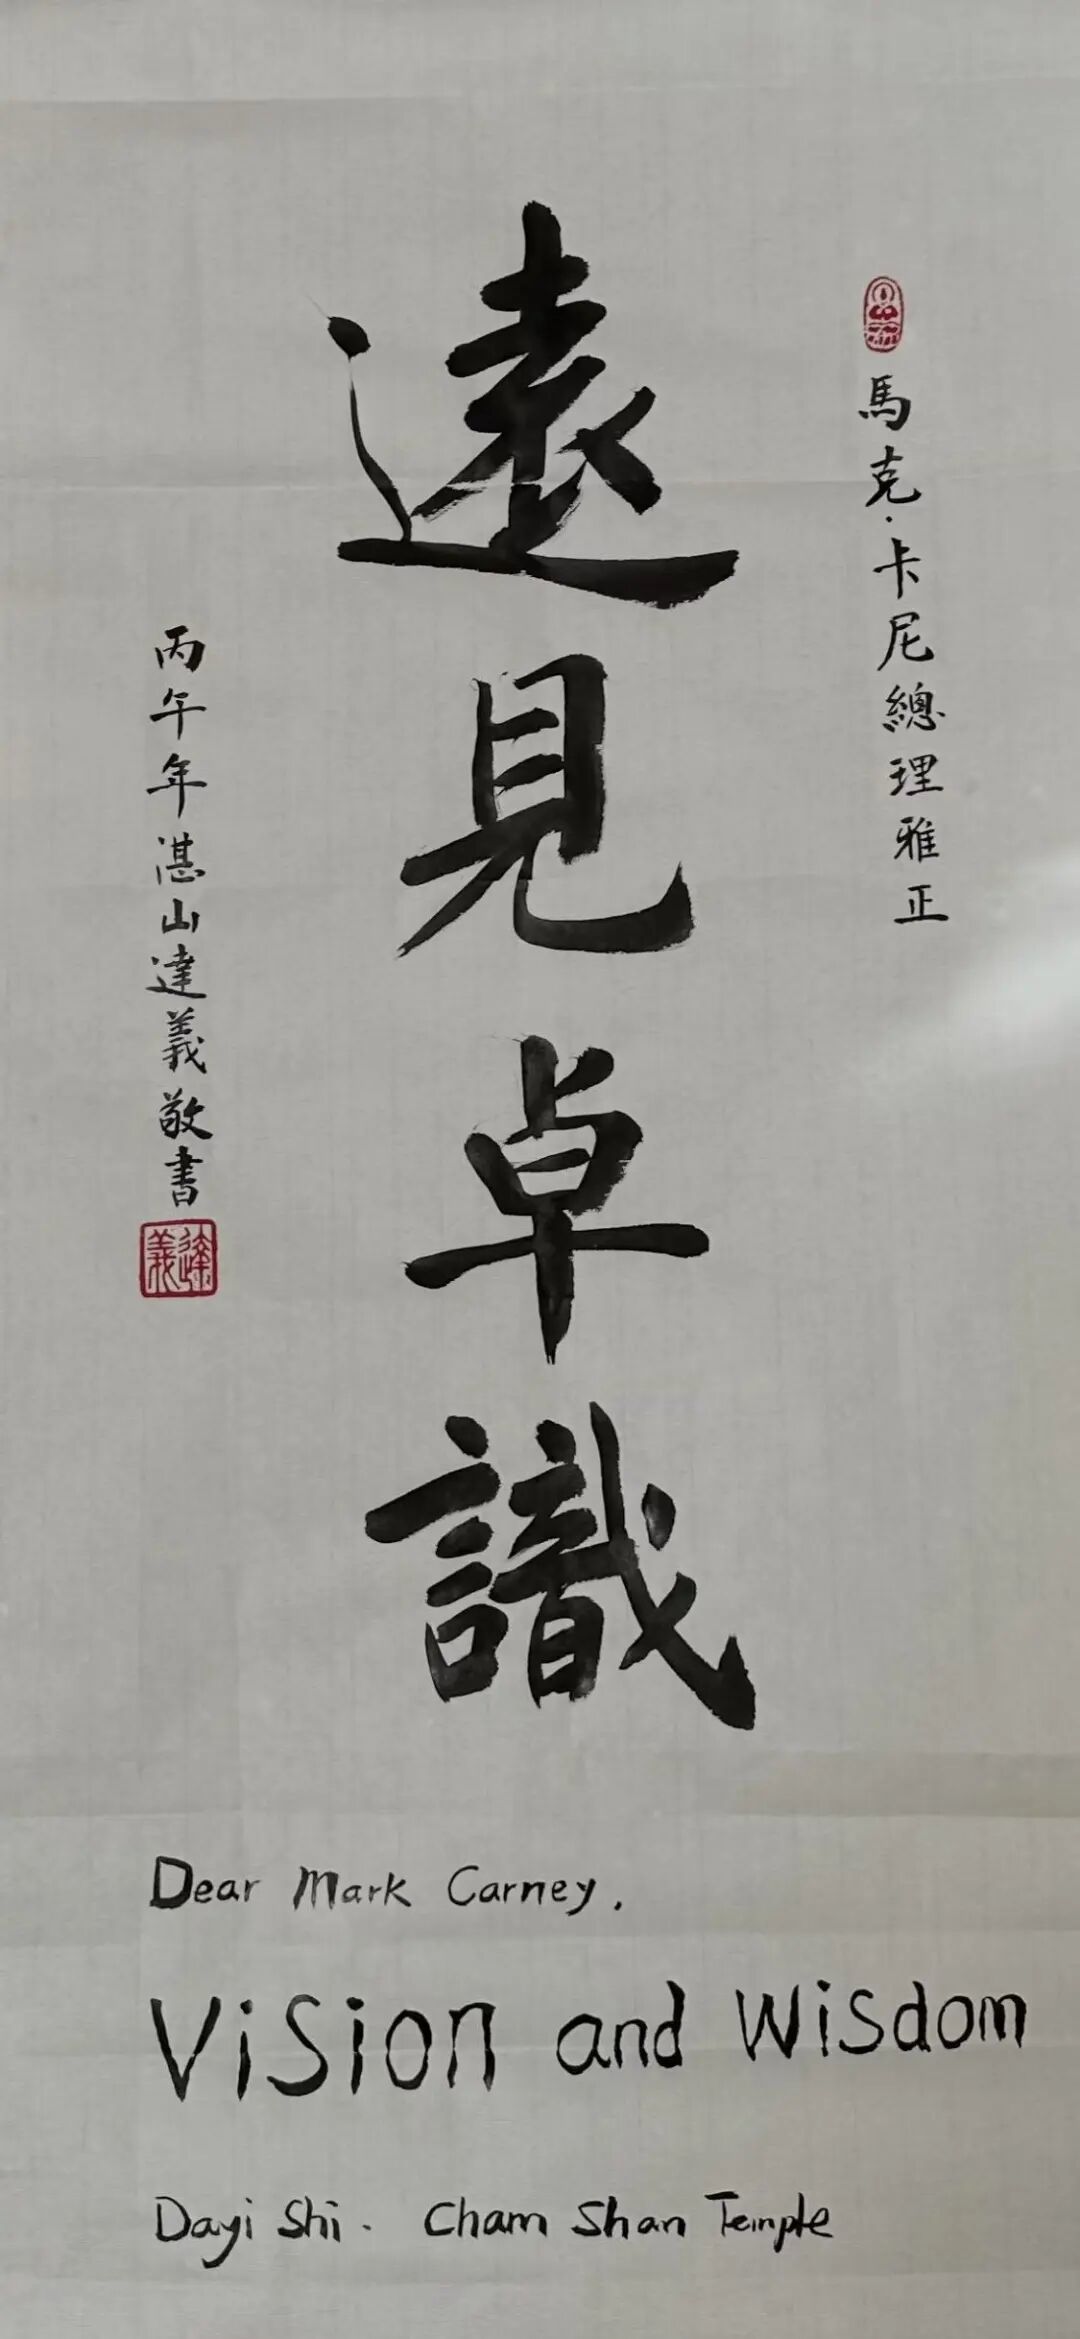 馬克·卡尼總理雅正
遠見卓識
丙午年湛山達義敬書
達義
Dear Mark Carney,
Vision and Wisdom
Dayi Shi. Cham Shan Temple